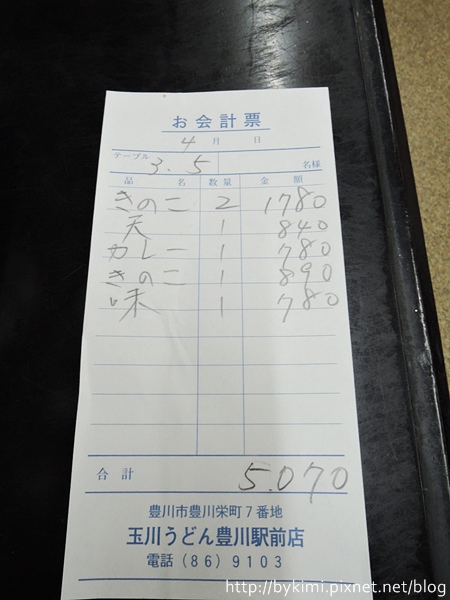 お会計票
4 月 日
テーブル 3.5 名様
品 名 数量 金 額
きのこ 2 1780
天 1 840
カレー 1 780
きのこ 1 890
味 1 780
合 計 5.070
豊川市豊川栄町7番地
玉川うどん豊川駅前店
電話(86)9103
http://bykimi.pixnet.net/blog